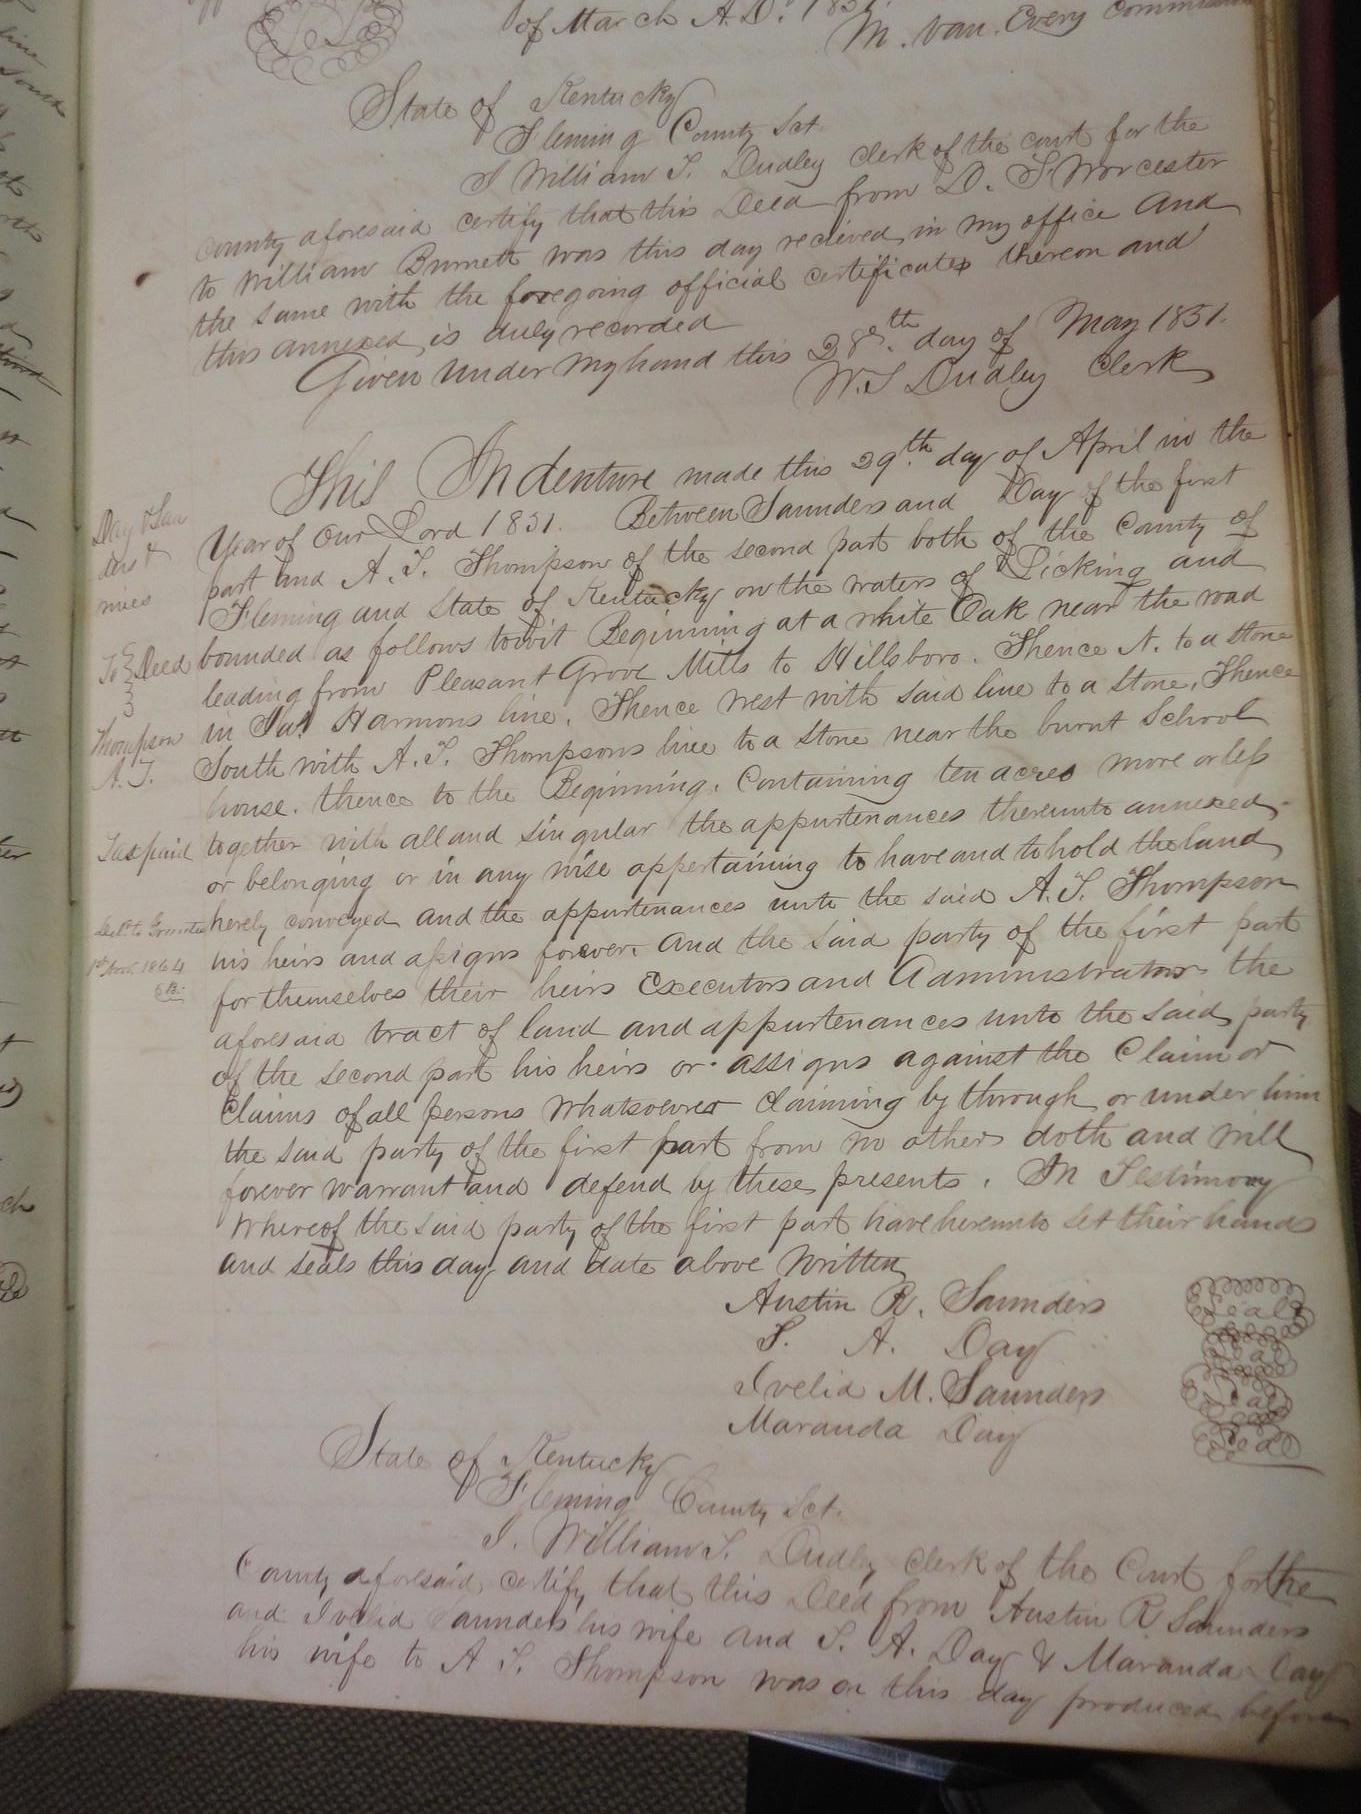 of March A.D. 1851.
M. Van. Every Commissioner
State of Kentucky
Fleming County Sct.
I William T. Dudley Clerk of the court for the
County aforesaid certify that this Deed from D. S. Worcester
to William Burnett was this day recieved in my office and
the same with the foregoing official certificates thereon and
this annexed, is duly recorded
Given under my hand this 28th. day of May 1851.
W.T Dudley Clerk
This Indenture made this 29th. day of April in the
Year of Our Lord 1851. Between Saunders and Day of the first
part and A. T. Thompson of the second part both of the County of
Fleming and State of Kentucky on the waters of Licking and
bounded as follows towit Beginning at a white Oak near the road
leading from Pleasant Grove Mills to Hillsboro. Thence N. to a Stone
in Jas. Harmons line. Thence West with said line to a Stone, Thence
South with A. T. Thompsons line to a Stone near the burnt School
house. thence to the Beginning. Containing ten acres more or less
together with all and singular the appurtenances thereunto annexed
or belonging or in any wise appertaining to have and to hold the land
hereby conveyed and the appurtenances unto the said A. T. Thompson
his heirs and assigns forever. And the said party of the first part
for themselves their heirs Executors and Administrators the
aforesaid tract of land and appurtenances unto the said party
of the second part his heirs or assigns against the Claim or
Claims of all persons whatsoever claiming by through or under him
the said party of the first part from no others doth and will
forever warrant and defend by these presents. In Testimony
Whereof the said party of the first part have hereunto set their hands
and seals this day and date above Written
Austin R. Saunders Seal
S. A. Day Seal
Ivelid M. Saunders Seal
Maranda Day Seal
State of Kentucky
Fleming County Sct.
I. William T. Dudley Clerk of the Court for the
County aforesaid, certify that this Deed from Austin R Saunders
and Ivelid Saunders his wife and S. A. Day & Maranda Day
his wife to A T. Thompson was on this day produced before
Day & Saun
ders &
wives
To Deed
Thompson
A. T.
Tax paid
Deld. to Grantee
1st Nov. 1864